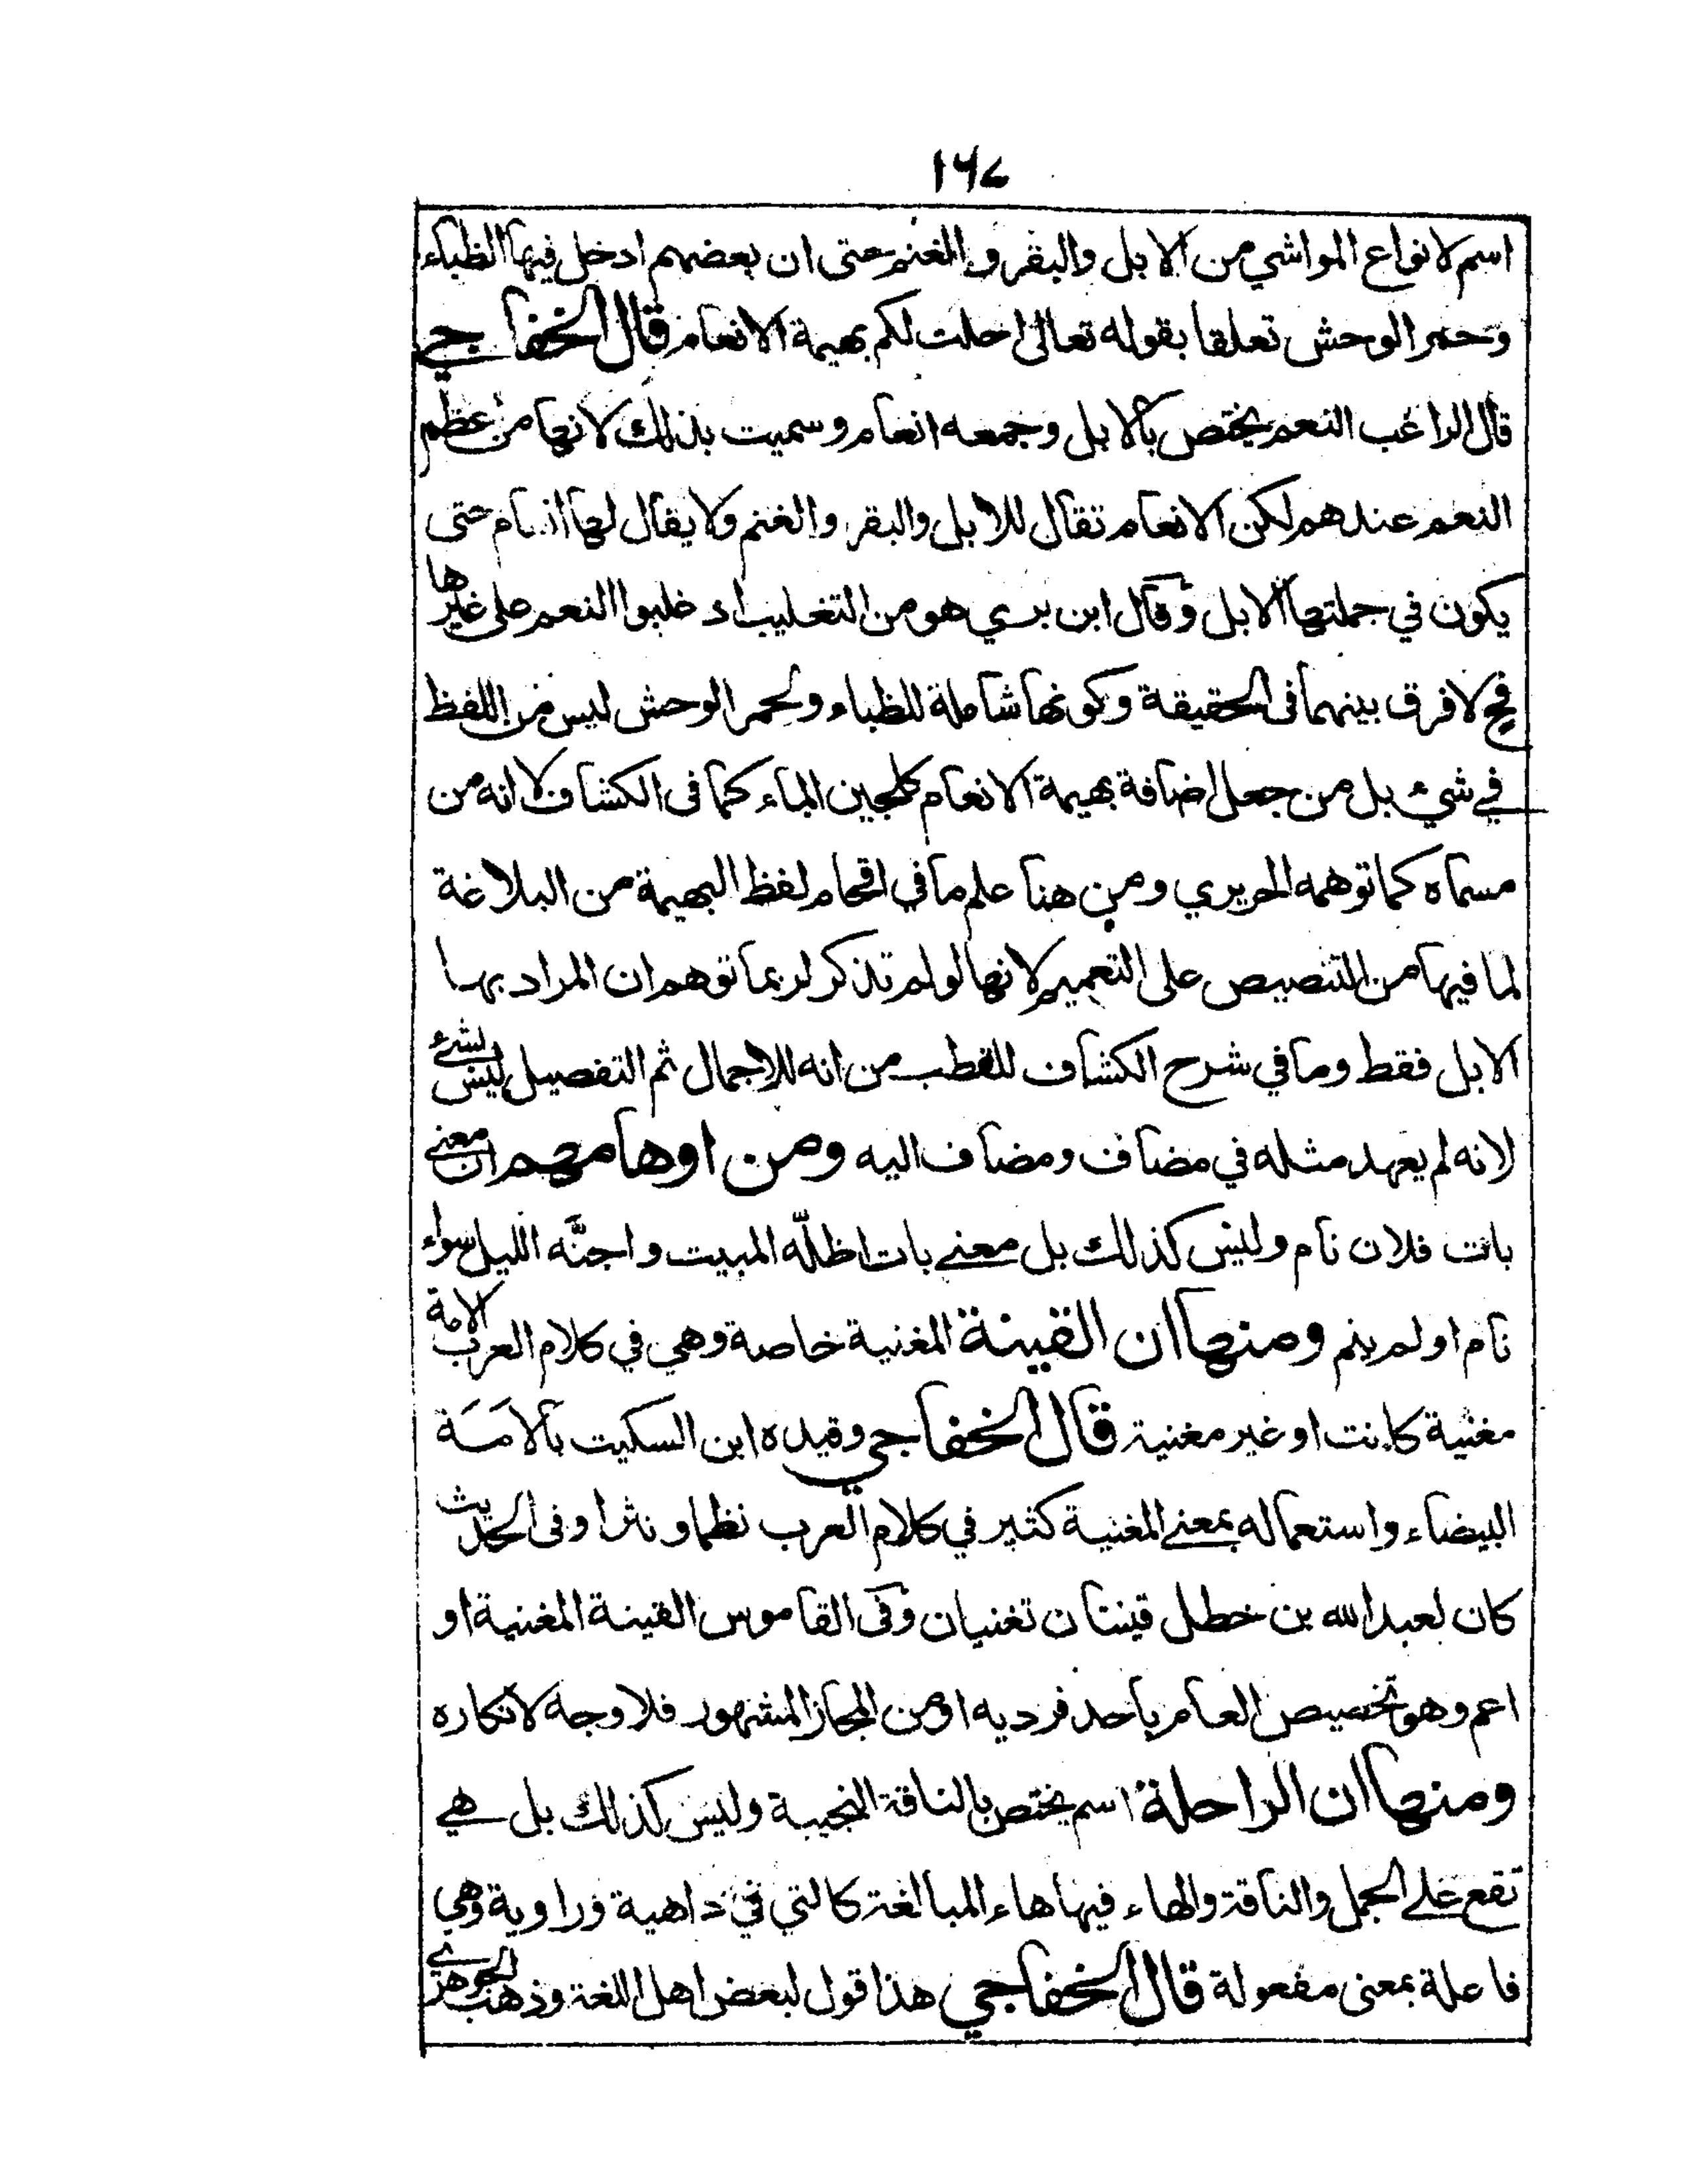 ١٦٧
اسم لانواع المواشي من الابل والبقر والغنم حتى ان بعضهم ادخل فيها الظباء
وحمر الوحش تعلقا بقوله تعالى احلت لكم بهيمة الانعام قال الخفاجي
قال الراغب النعم يختص بالابل وجمعه انعام وسميت بذلك لانها من عظم
النعم عندهم لكن الانعام تقال للابل والبقر والغنم ولا يقال لها انعام حتى
يكون في جملتها الابل وقال ابن بري هو من التغليب اذ غلبوا النعم على غيرها
فح لا فرق بينهما فى الحقيقة وكونها شاملة للظباء ولحمر الوحش ليس من اللفظ
في شيء بل من جعل اضافة بهيمة الانعام كلجين الماء كما فى الكشاف لا انه من
مسماه كما توهمه الحريري ومن هنا علم ما في اقحام لفظ البهيمة من البلاغة
لما فيها من التنصيص على التعميم لانها لو لم تذكر لربما توهم ان المراد بها
الابل فقط وما في شرح الكشاف للقطب من انه للاجمال ثم التفصيل ليس بشئ
لانه لم يعهد مثله في مضاف ومضاف اليه ومن اوهامهم ان معنى
بات فلان نام وليس كذلك بل معنے بات اظلّه المبيت واجنّه الليل سواء
نام او لم ينم ومنها ان القينة المغنية خاصة وهي في كلام العرب الامة
مغنية كانت او غير مغنية قال الخفاجي وقيده ابن السكيت بالامَة
البيضاء واستعماله بمعنے المغنية كثير في كلام العرب نظما ونثرا وفى الحديث
كان لعبد الله بن خطل قينتان تغنيان وفى القاموس القينة المغنية او
اعم وهو تخصيص العام باحد فرديه او من المجاز المشهور فلا وجه لانكاره
ومنها ان الراحلة اسم يختص بالناقة النجيبة وليس كذلك بل هي
تقع على الجمل والناقة والهاء فيها هاء المبالغة كالتي في داهية وراوية وهي
فاعلة بمعنى مفعولة قال الخفاجي هذا قول لبعض اهل اللغة وذهب الجوهري